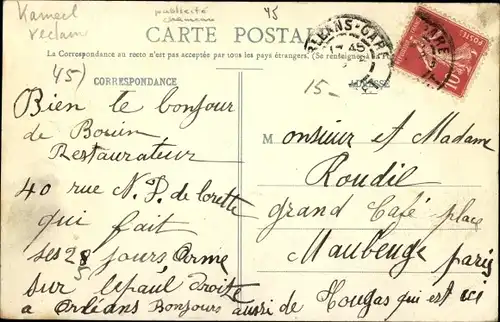 Kameel
reclame
publicité
45
CARTE POSTALE
La Correspondance au recto n'est pas acceptée par tous les pays étrangers. (Se renseigner à la
45)
CORRESPONDANCE
ORLÉANS-GARE
GARE
POSTES
10
15-
ADRESSE
Bien le bonjour
de Bouin
Restaurateur
40 rue N. D. de lorette
qui fait
ses 28 jours Arme
sur lepaul droite
a Orléans Bonjours aussi de Hougas qui est ici
Monsieur et Madame
Roudil
grand Café place
Maubeuge paris